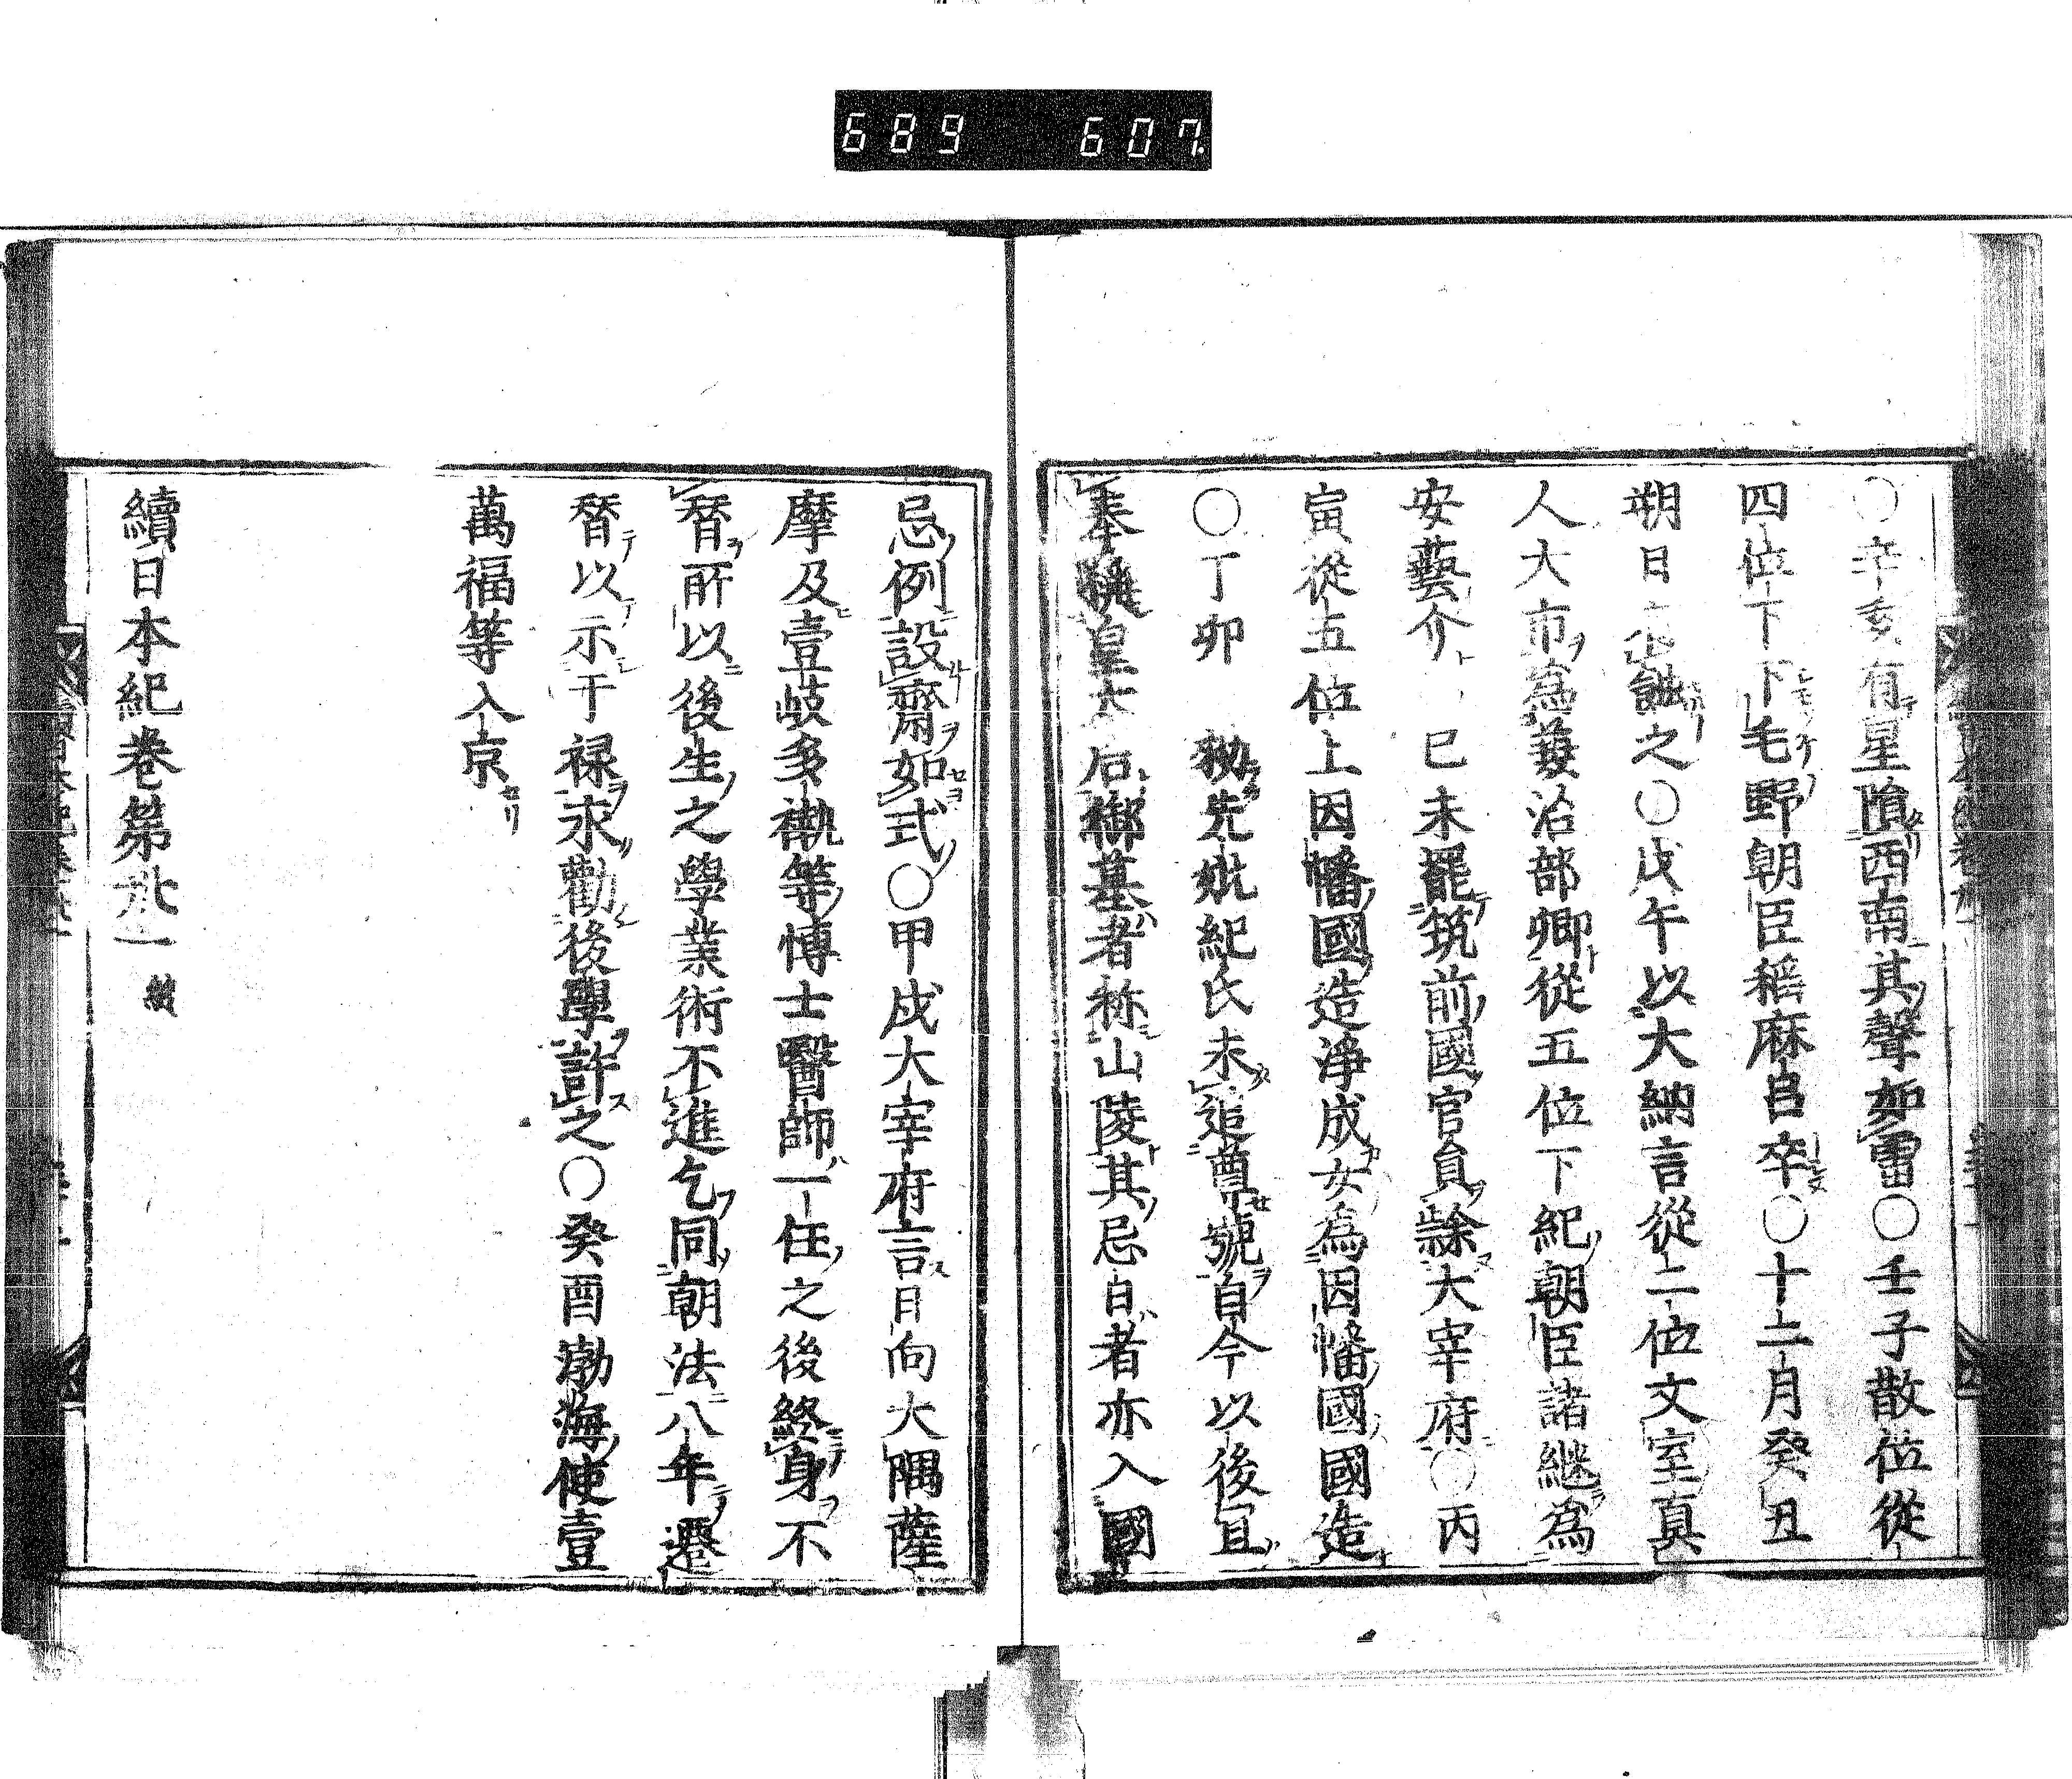 689 607
○辛亥有星隕西南其聲如雷○壬子散位從
四位下下毛野朝臣稲麻呂卒○十二月癸丑
朔日蝕之○戊午以大納言從二位文室真
人大市為兼治部卿從五位下紀朝臣諸継為
安藝介 己未罷筑前國官員隷大宰府○丙
寅從五位上因幡國造浄成女為因幡國國造
○丁卯 勑先妣紀氏未追尊號自今以後宜
奉稱皇太后御墓者称山陵其忌日者亦入國
忌例設齋如式○甲戌大宰府言日向大隅薩
摩及壹岐多褹等博士醫師一任之後終身不
替所以後生之學業術不進乞同朝法八年遷
替以示干禄求勸後學許之○癸酉渤海使壹
萬福等入京
續日本紀巻第卅一